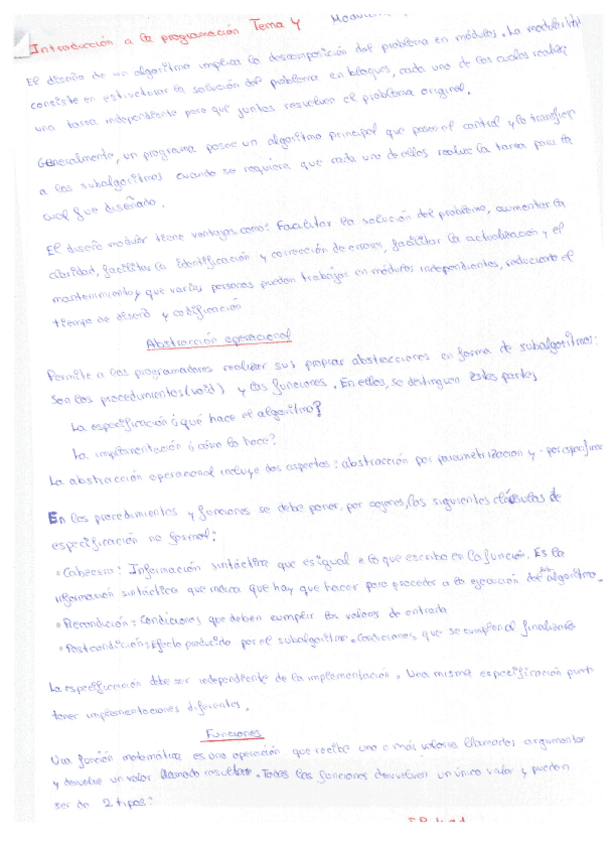 Introducción a la programación Tema 4
El diseño de un algoritmo implica la descomposición del problema en módulos. La modularidad
consiste en estructurar la solución del problema en bloques, cada uno de los cuales realiza
una tarea independiente para que juntas resuelvan el problema original.
Generalmente, un programa posee un algoritmo principal que posee el control y lo transfiere
a los subalgoritmos cuando se requiera que cada uno de ellos realice la tarea para la
cual fue diseñado.
El diseño modular tiene ventajas como: Facilitar la solución del problema, aumentar la
claridad, facilitar la identificación y corrección de errores, facilitar la actualización y el
mantenimiento y que varias personas puedan trabajar en módulos independientes, reduciendo el
tiempo de diseño y codificación
Abstracción operacional
Permite a los programadores realizar sus propias abstracciones en forma de subalgoritmos:
Son los procedimientos (void) y las funciones. En ellos, se distinguen estas partes
La especificación ó qué hace el algoritmo?
La implementación ó cómo lo hace?
La abstracción operacional incluye dos aspectos: abstracción por parametrización y por especificac
En los procedimientos y funciones se debe poner, por los siguientes cláusulas de
especificación no formal:
• Cabecera: Información sintáctica que es igual a lo que escribo en la función. Es la
información sintáctica que indica que hay que hacer para proceder a la ejecución del algoritmo.
• Precondición: Condiciones que deben cumplir los valores de entrada
• Postcondición: Efecto producido por el subalgoritmo. Condiciones que se cumplen al finalizarlo
La especificación debe ser independiente de la implementación. Una misma especificación puede
tener implementaciones diferentes.
Funciones
Una función matemática es una operación que recibe uno o más valores llamados argumentos
y devuelve un valor llamado resultado. Todas las funciones devuelven un único valor y pueden
ser de 2 tipos: